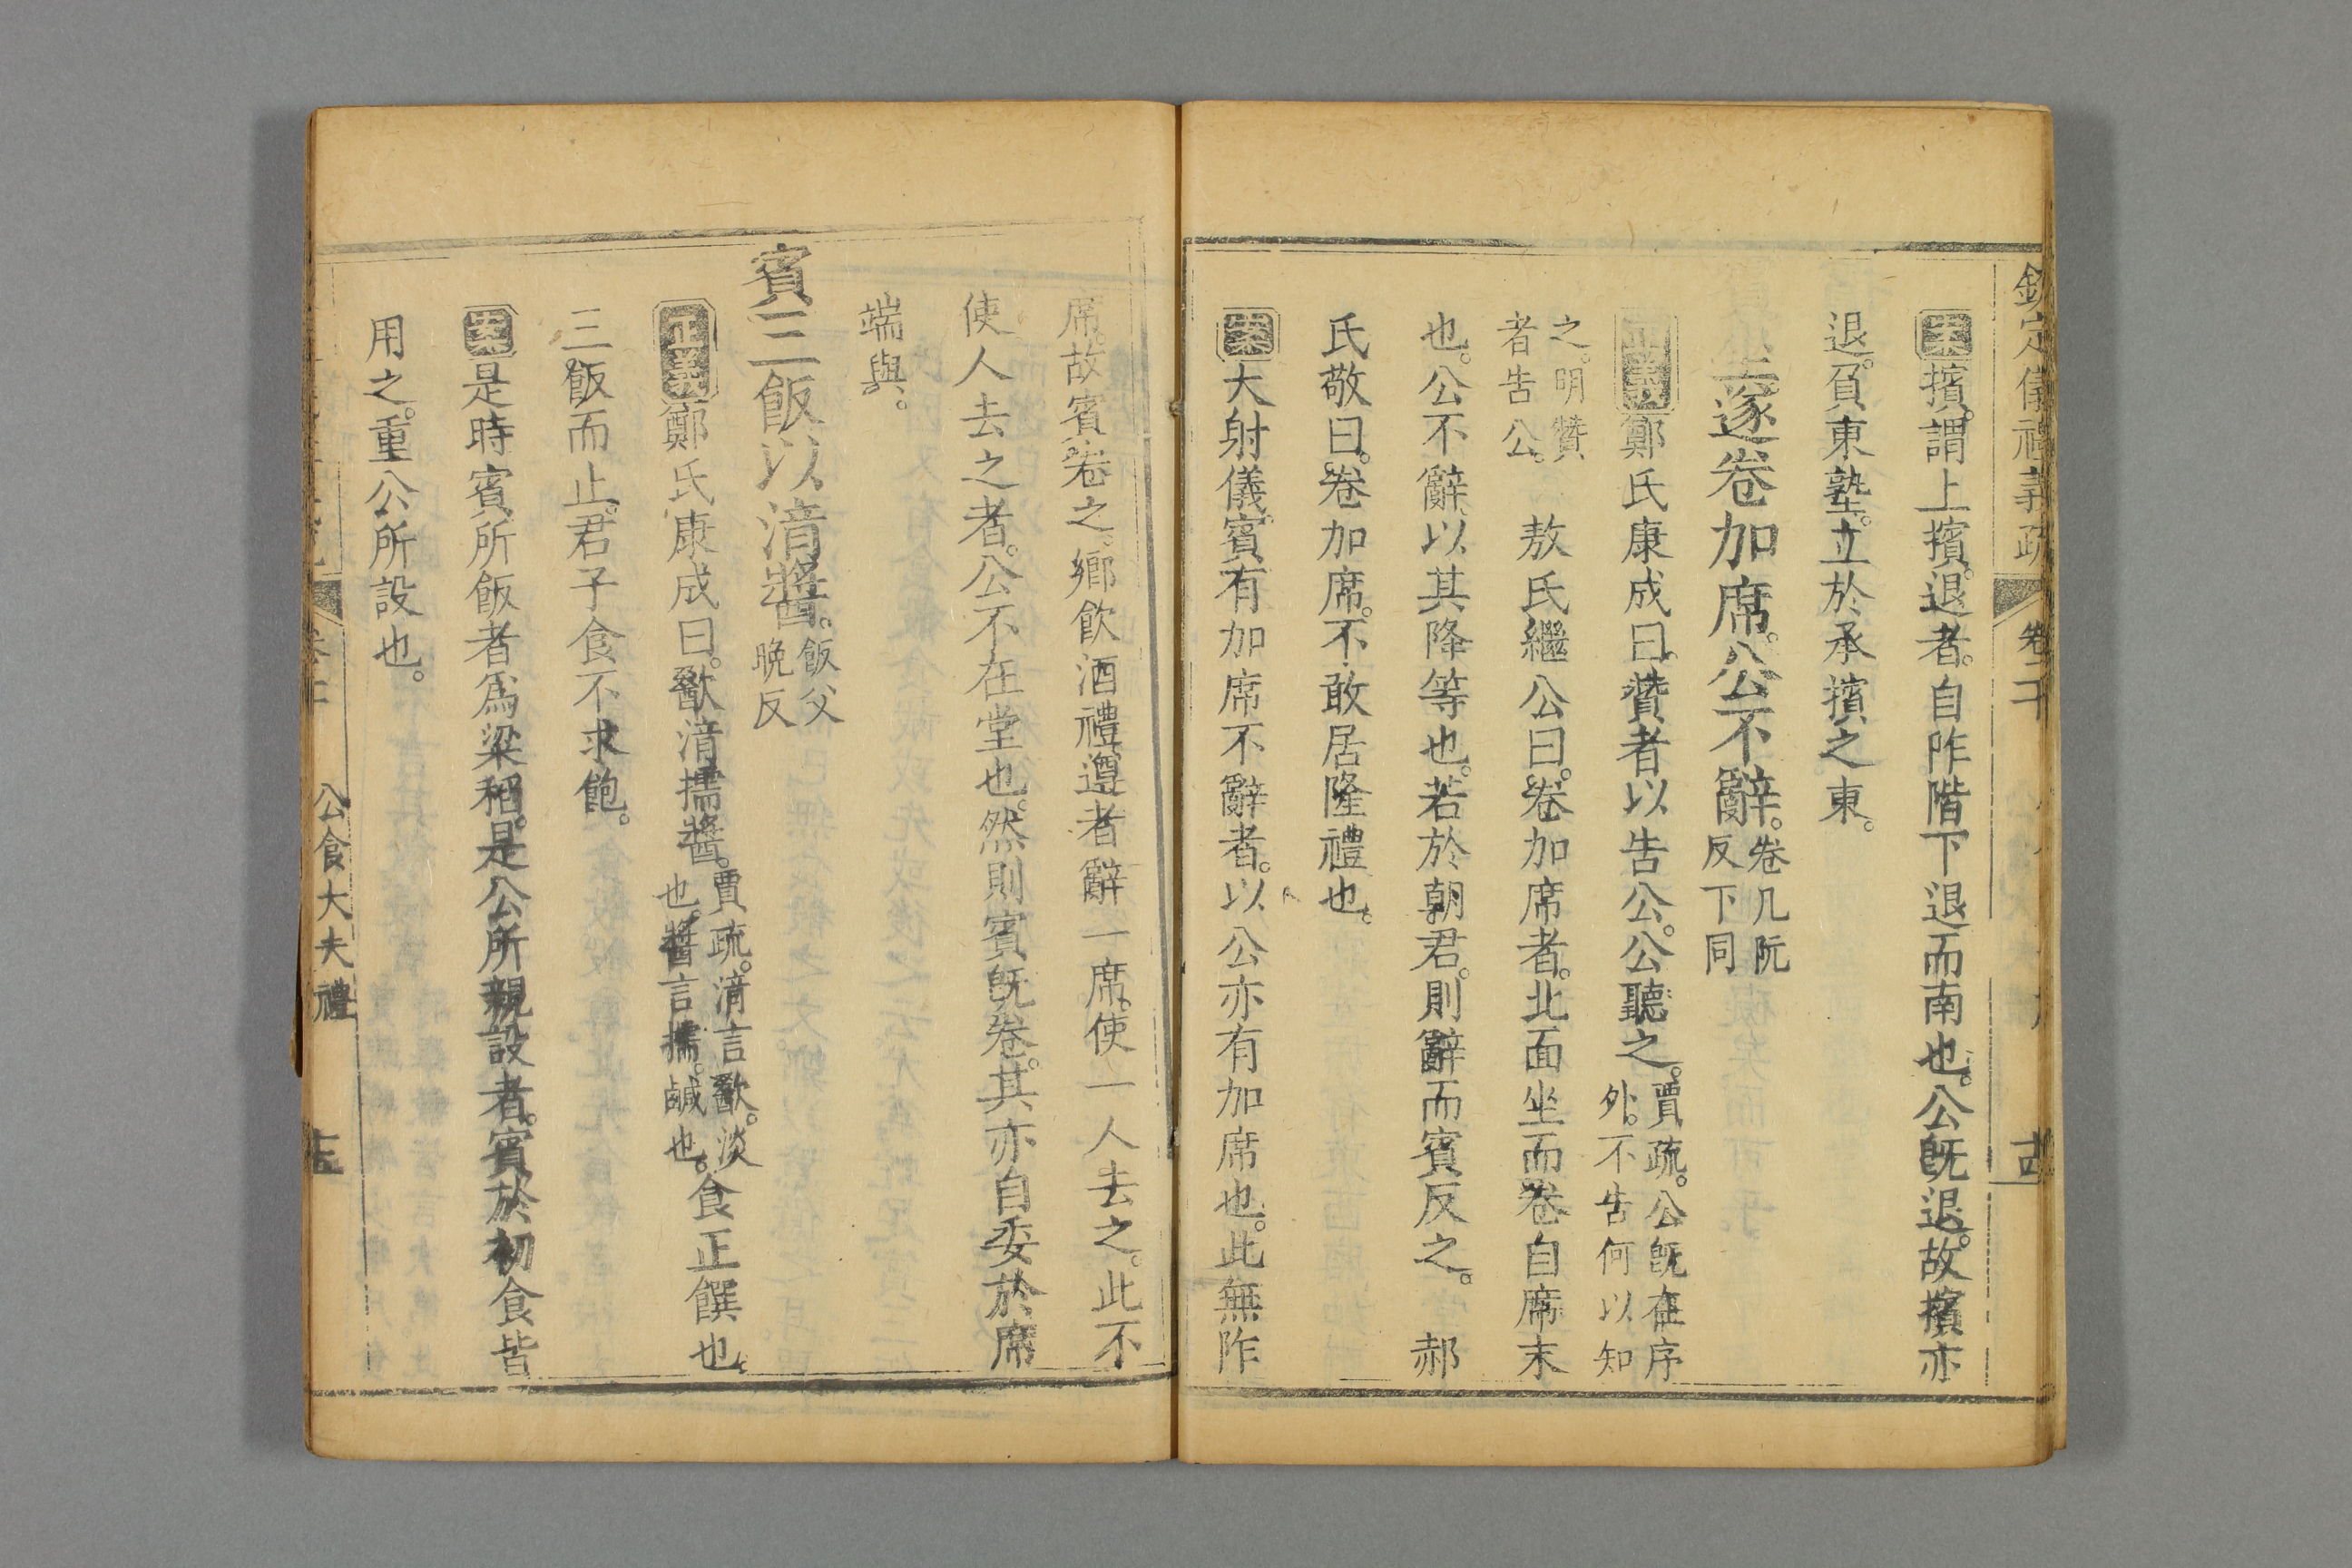 欽定儀禮義疏 卷二十
案擯謂上擯。退者。自阼階下退而南也。公旣退。故擯亦
退。負東塾。立於承擯之東。
遂卷加席。公不辭。卷几阮反下同
正義鄭氏康成曰。贊者以告公。公聽之。賈疏。公旣在序外。不告何以知
之。明贊者告公。 敖氏繼公曰。卷加席者。北面坐而卷自席末
也。公不辭。以其降等也。若於朝君。則辭而賓反之。 郝
氏敬曰。卷加席。不敢居隆禮也。
案大射儀。賓有加席不辭者。以公亦有加席也。此無阼
席。故賓卷之。鄉飮酒禮遵者辭一席。使一人去之。此不
使人去之者。公不在堂也。然則賓旣卷。其亦自委於席
端與。
賓三飯以湆醬。飯父晩反
正義鄭氏康成曰。歠湆擩醬。賈疏。湆言歠。淡也。醬言擩。鹹也。食正饌也。
三飯而止。君子食不求飽。
案是時賓所飯者爲粱稻。是公所親設者。賓於初食皆
用之。重公所設也。
公食大夫禮